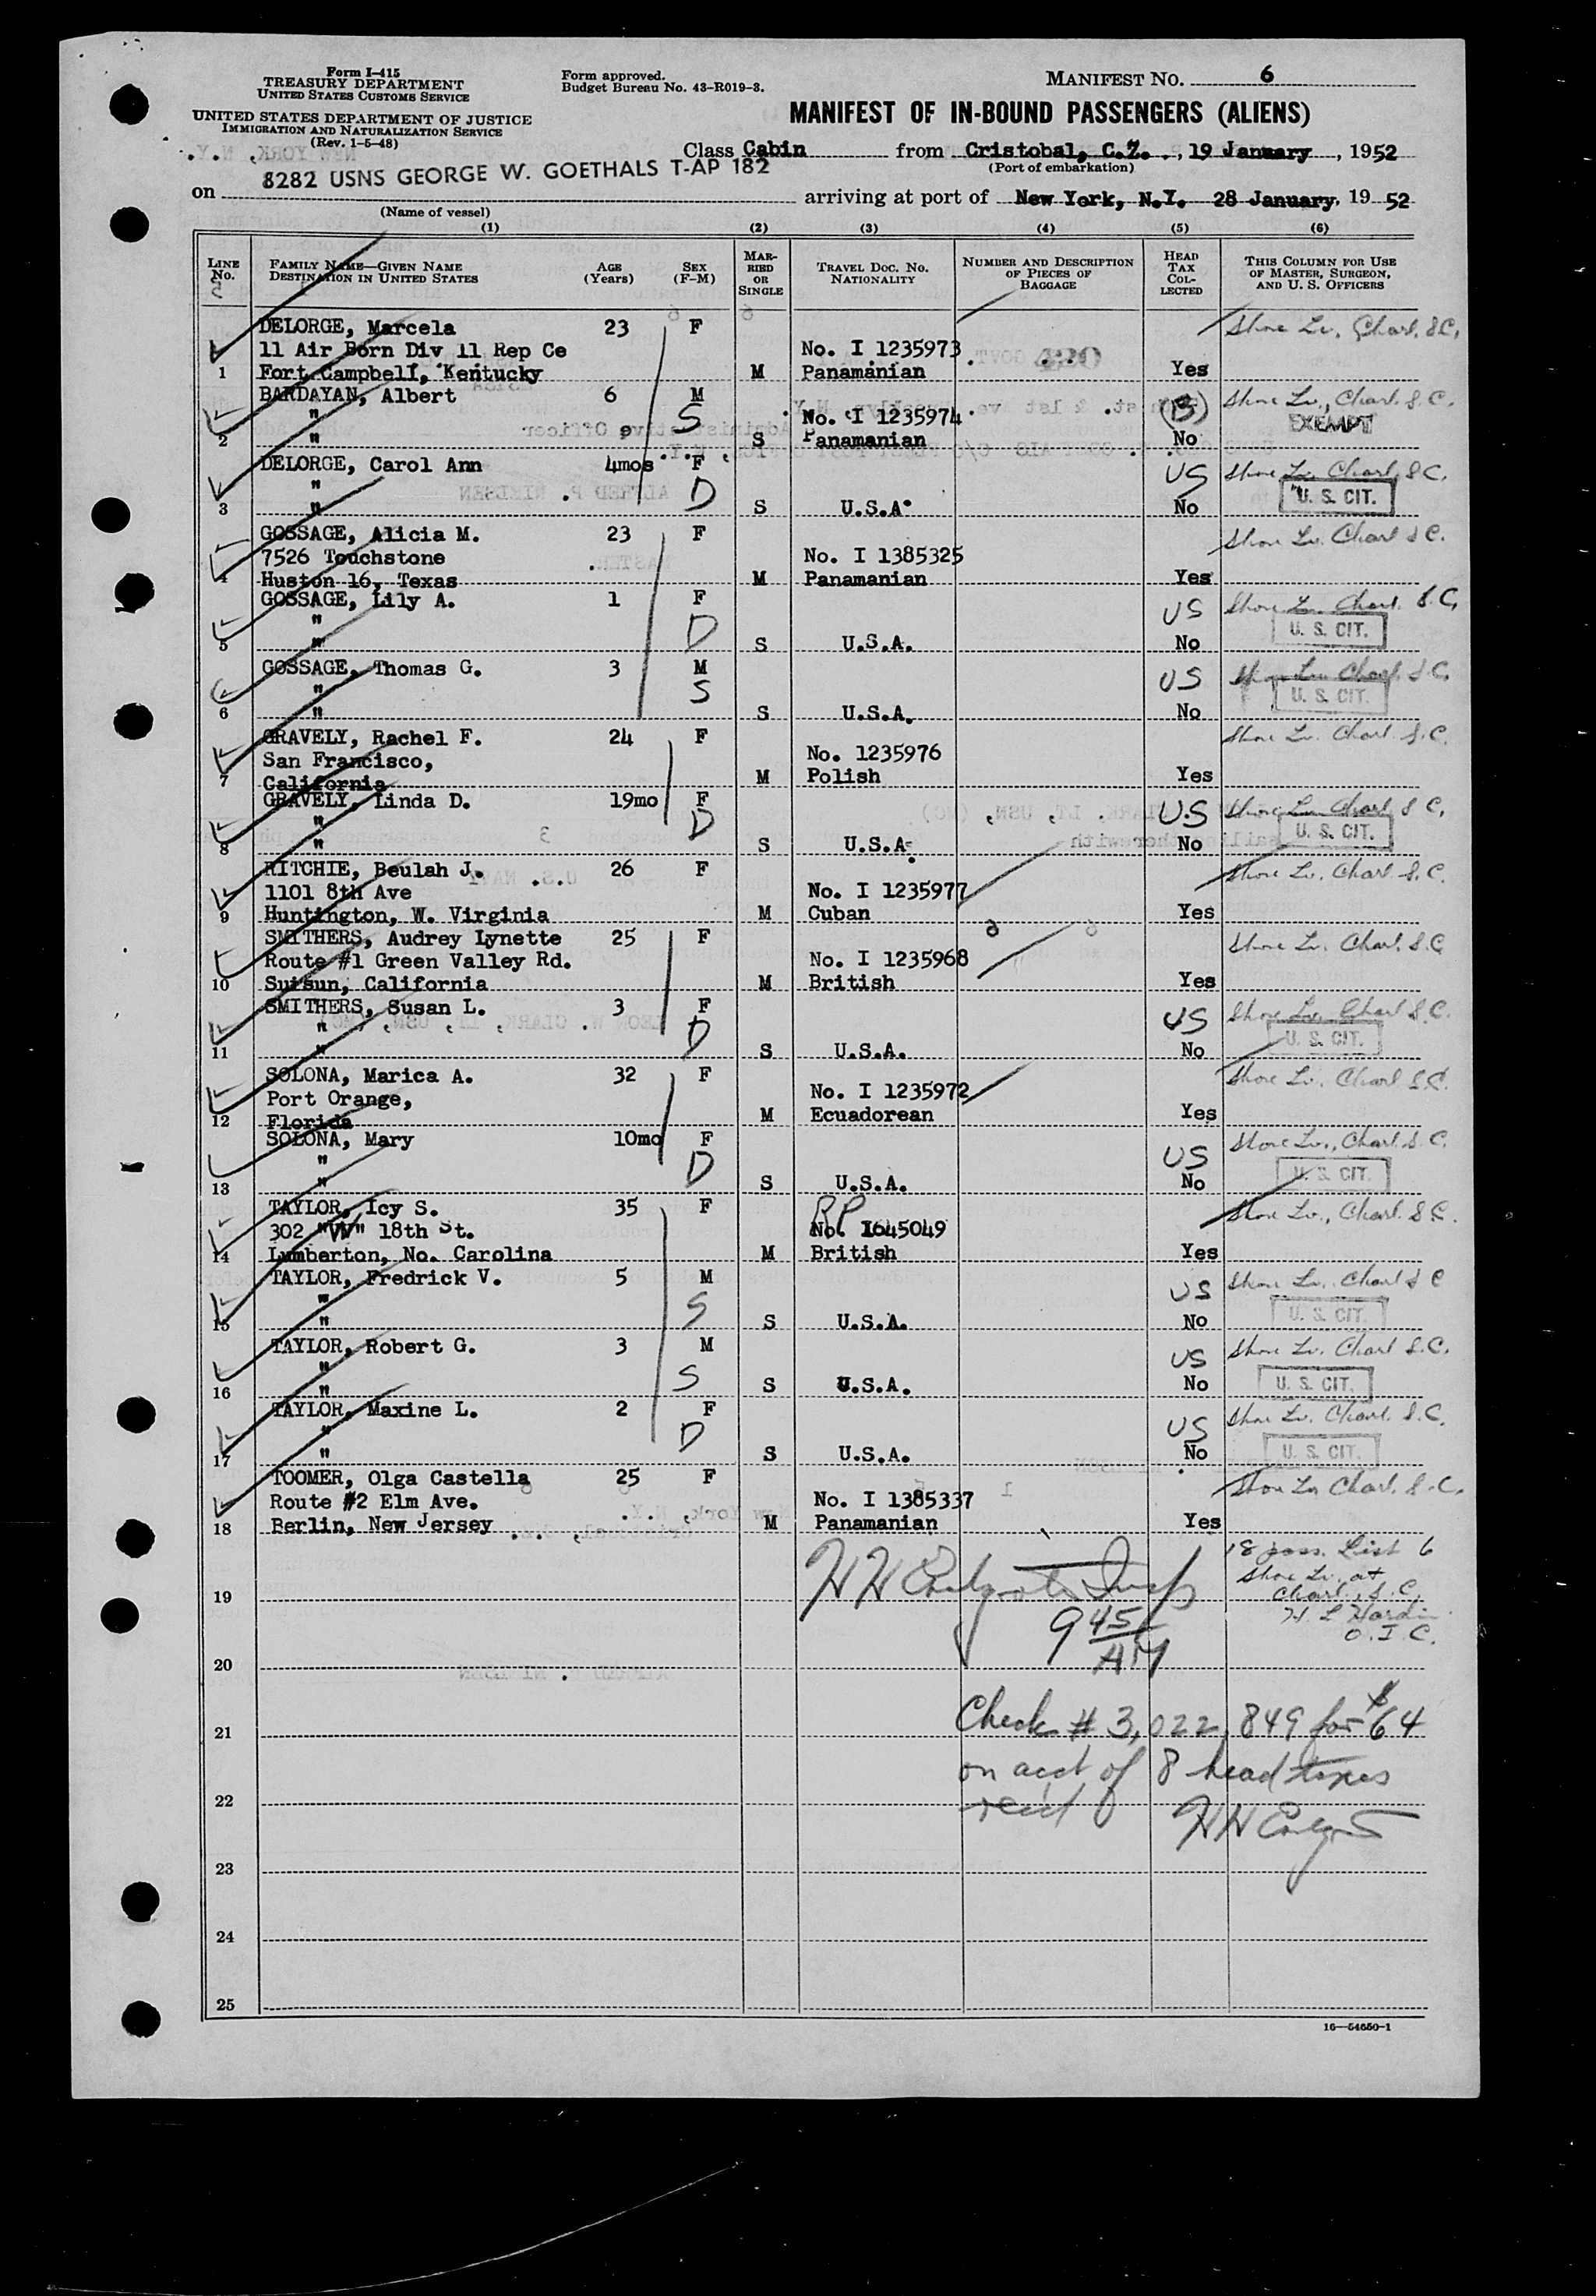 Form I-415
TREASURY DEPARTMENT
UNITED STATES CUSTOMS SERVICE
UNITED STATES DEPARTMENT OF JUSTICE
IMMIGRATION AND NATURALIZATION SERVICE
(Rev. 1-5-48)
Form approved.
Budget Bureau No. 43-R019-3.
MANIFEST NO. 6
MANIFEST OF IN-BOUND PASSENGERS (ALIENS)
Class Cabin from Cristobal, C.Z., 19 January, 1952
(Port of embarkation)
on 8282 USNS GEORGE W. GOETHALS T-AP 182 arriving at port of New York, N.Y. 28 January, 19 52
(Name of vessel)
(1) (2) (3) (4) (5) (6)
LINE NO. FAMILY NAME—GIVEN NAME DESTINATION IN UNITED STATES AGE (Years) SEX (F-M) MARRIED OR SINGLE TRAVEL DOC. NO. NATIONALITY NUMBER AND DESCRIPTION OF PIECES OF BAGGAGE HEAD TAX COLLECTED THIS COLUMN FOR USE OF MASTER, SURGEON, AND U. S. OFFICERS
DELORGE, Marcela 23 F Shore Lv. Charl. S.C.
11 Air Born Div 11 Rep Ce No. I 1235973
1 Fort Campbell, Kentucky M Panamanian Yes
BARDAYAN, Albert 6 M Shore Lv., Charl. S.C.
" S No. I 1235974 (B) EXEMPT
2 " S Panamanian No
DELORGE, Carol Ann 4mos F US Shore Lv. Charl. S.C.
" D U. S. CIT.
3 " S U.S.A. No
GOSSAGE, Alicia M. 23 F Shore Lv. Charl S.C.
7526 Touchstone No. I 1385325
4 Huston 16, Texas M Panamanian Yes
GOSSAGE, Lily A. 1 F US Shore Lv. Charl. S.C.
" D U. S. CIT.
5 " S U.S.A. No
GOSSAGE, Thomas G. 3 M US Shore Lv. Charl. S.C.
" S U. S. CIT.
6 " S U.S.A. No
GRAVELY, Rachel F. 24 F Shore Lv. Charl. S.C.
San Francisco, No. 1235976
7 California M Polish Yes
GRAVELY, Linda D. 19mo F U.S Shore Lv. Charl S.C.
" D U. S. CIT.
8 " S U.S.A. No
RITCHIE, Beulah J. 26 F Shore Lv. Charl. S.C.
1101 8th Ave No. I 1235977
9 Huntington, W. Virginia M Cuban Yes
SMITHERS, Audrey Lynette 25 F Shore Lv. Charl. S.C
Route #1 Green Valley Rd. No. I 1235968
10 Suisun, California M British Yes
SMITHERS, Susan L. 3 F US Shore Lv. Charl S.C.
" D U. S. CIT.
11 " S U.S.A. No
SOLONA, Marica A. 32 F Shore Lv. Charl S.C.
Port Orange, No. I 1235972
12 Florida M Ecuadorean Yes
SOLONA, Mary 10mo F US Shore Lv., Charl. S.C.
" D U. S. CIT.
13 " S U.S.A. No
TAYLOR, Icy S. 35 F RP Shore Lv., Charl. S.C.
302 "W" 18th St. No. 1645049
14 Lumberton, No. Carolina M British Yes
TAYLOR, Fredrick V. 5 M US Shore Lv. Charl S C
" S U. S. CIT.
15 " S U.S.A. No
TAYLOR, Robert G. 3 M US Shore Lv. Charl S.C.
" S U. S. CIT.
16 " S U.S.A. No
TAYLOR, Maxine L. 2 F US Shore Lv. Charl. S.C.
" D U. S. CIT.
17 " S U.S.A. No
TOOMER, Olga Castella 25 F Shore Lv Charl. S.C.
Route #2 Elm Ave. No. I 1385337
18 Berlin, New Jersey M Panamanian Yes
18 pass. List 6
Shore Lv. at
19 Charl., S.C.
H. L. Hardin
O.I.C.
9 45 AM
20
21 Check # 3,022,849 for $64
on acct of 8 head taxes
22 rec'd
23
24
25
16—54650-1